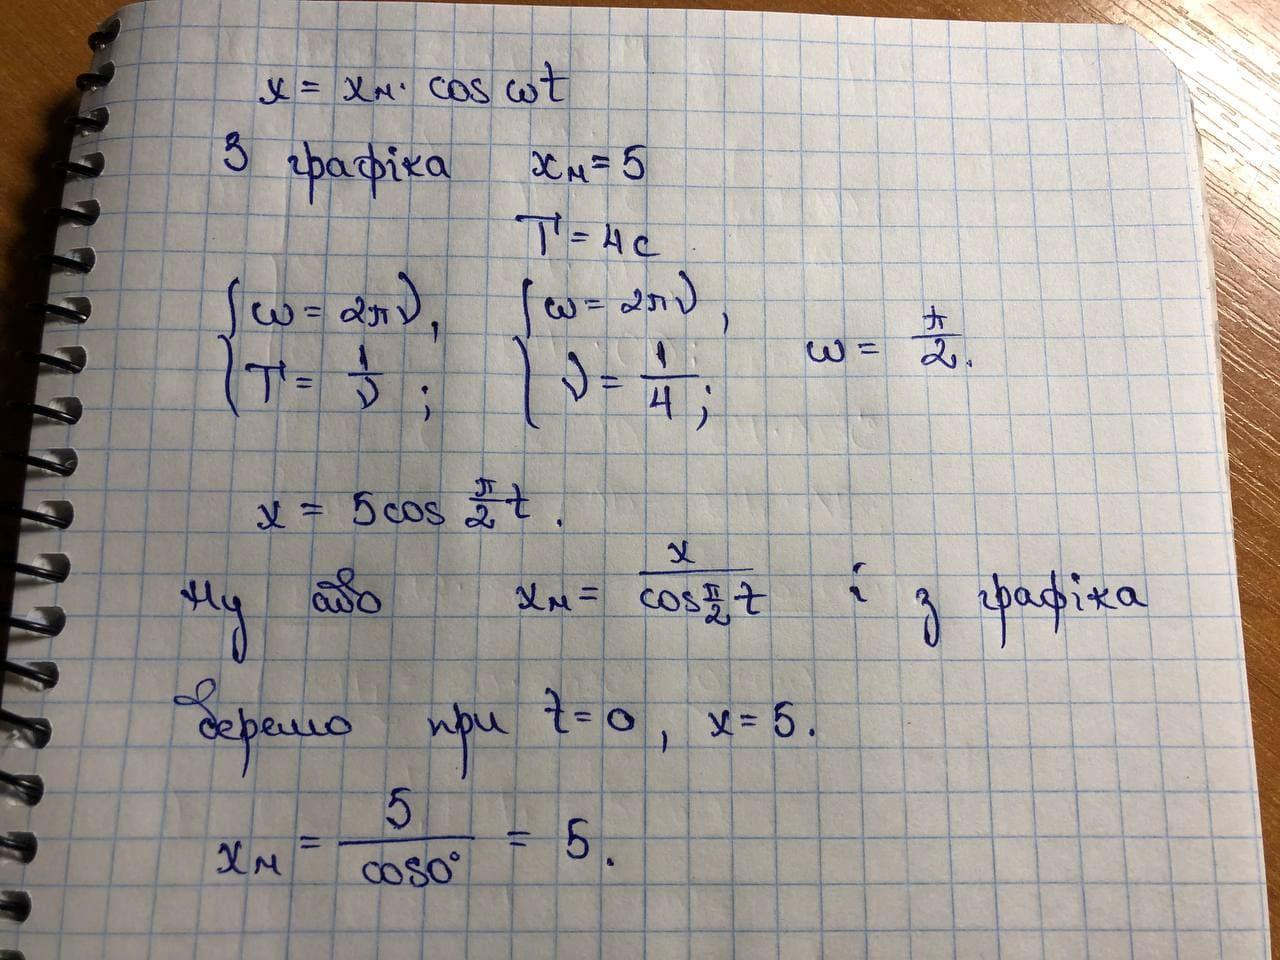 x = xм · cos ωt
З графіка xм = 5
T = 4c
{ω = 2πν, {ω = 2πν, ω = π/2.
{T = 1/ν; {ν = 1/4;
x = 5cos π/2 t.
Ну або xм = x/cos π/2 t і з графіка
беремо при t = 0, x = 5.
xм = 5/cos0° = 5.